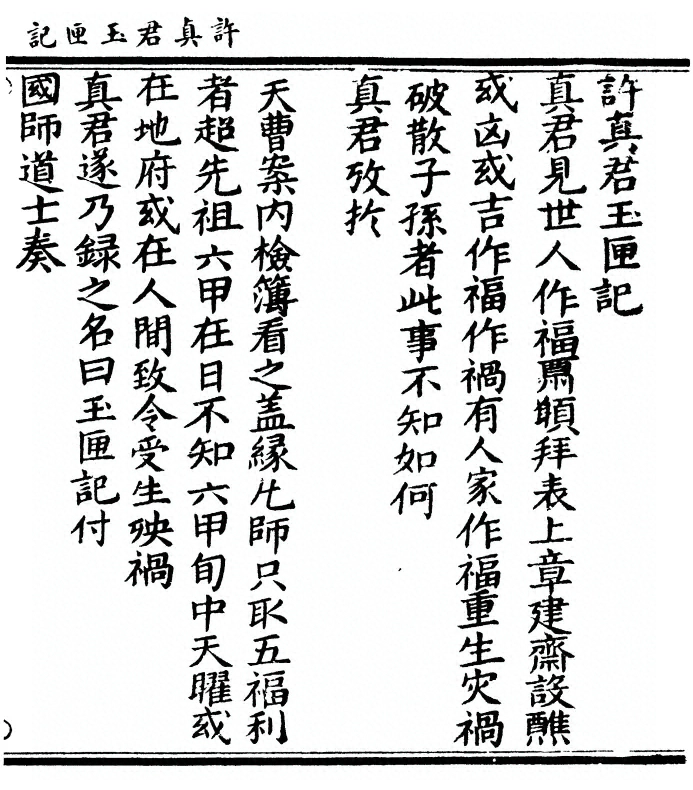 許真君玉匣記
許真君玉匣記
真君見世人作福禱願拜表上章建齋設醮
或凶或吉作福作禍有人家作福重生灾禍
破散子孫者此事不知如何
真君攷扵
天曹案内檢簿看之盖縁凢師只取五福利
者超先祖六甲在日不知六甲旬中天曜或
在地府或在人間致令受生殃禍
真君遂乃録之名曰玉匣記付
國師道士奏